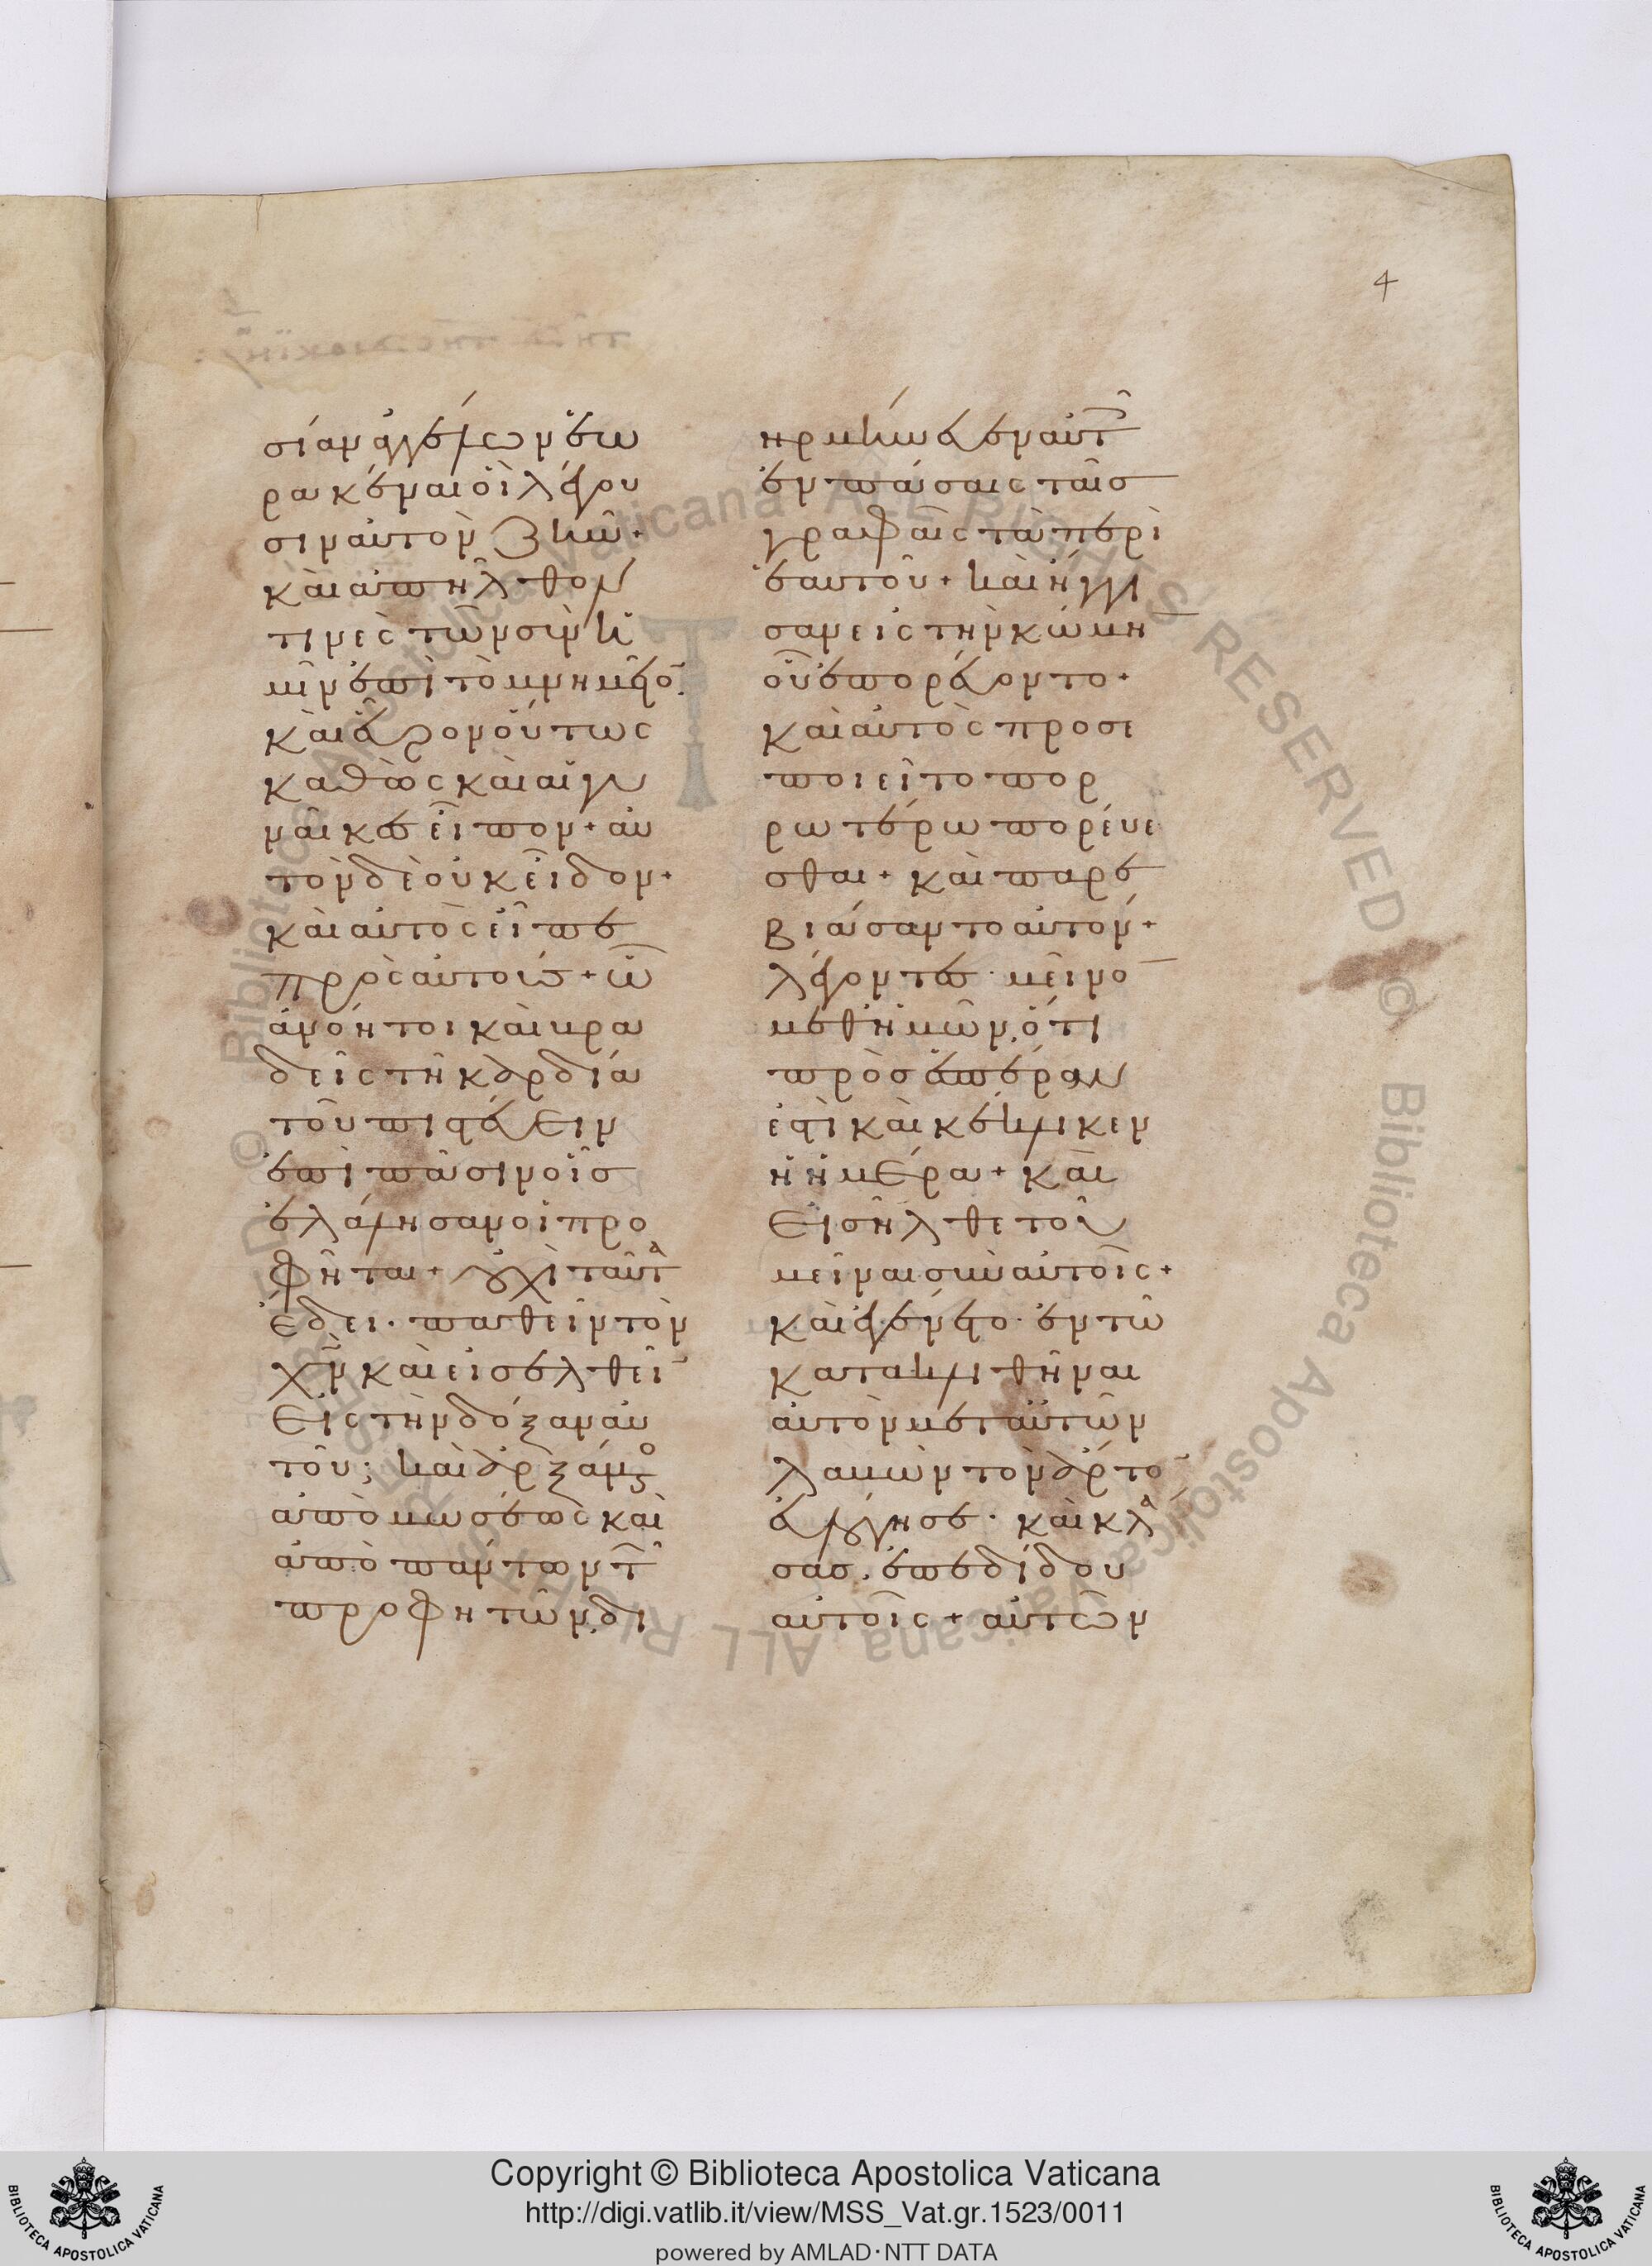 4
σίαν ἀγγέλων ἑω
ρακέναι οἳ λέγου
σιν αὐτὸν ζῆν·
καὶ ἀπῆλθον
τινὲς τῶν σὺν ἡ
μῖν ἐπὶ τὸ μνημεῖο̅·
καὶ εὗρον οὕτως
καθὼς καὶ αἱ γυ
ναῖκες εἶπον + αὐ
τὸν δὲ οὐκ εἶδον +
καὶ αὐτὸς εἶπε
πρὸς αὐτούς + ὦ
ἀνόητοι καὶ βρα
δεῖς τῆ καρδία
τοῦ πιστεύειν
ἐπὶ πᾶσιν οἷς
ἐλάλησαν οἱ προ
φῆται + οὐχὶ ταῦτα
ἔδει · παθεῖν τὸν
χ̅ν̅ καὶ εἰσελθεῖ̅
εἰς τὴν δόξαν αὐ
τοῦ; καὶ ἀρξάμενος
ἀπὸ μωσέως καὶ
ἀπὸ πάντων τῶν
προφητῶν, δι
ηρμήνευεν αὐτοῖς
ἐν πάσαις ταῖς
γραφαῖς τὰ περὶ
ἑαυτοῦ + καὶ ἤγγι
σαν εἰς τὴν κώμη̅
οὗ ἐπορεύοντο +
καὶ αὐτὸς προσε
ποιεῖτο πορ
ρωτέρω πορεύε
σθαι + καὶ παρε
βιάσαντο αὐτόν +
λέγοντες · μεῖνο̅
μεθ' ἡμῶν, ὅτι
πρὸς ἑσπέραν
ἐστὶ καὶ κέκλικεν
ἡ ἡμέρα + καὶ
εἰσῆλθε τοῦ
μεῖναι σὺν αὐτοῖς +
καὶ ἐγένετο · ἐν τῶ
κατακλιθῆναι
αὐτὸν μετ' αὐτῶν
λαβὼν τὸν ἄρτο̅
εὐλόγησε · καὶ κλά
σας, ἐπεδίδου
αὐτοῖς + αὐτῶν
Biblioteca Apostolica Vaticana ALL RIGHTS RESERVED ©
Copyright © Biblioteca Apostolica Vaticana
http://digi.vatlib.it/view/MSS_Vat.gr.1523/0011
powered by AMLAD·NTT DATA
BIBLIOTECA APOSTOLICA VATICANA
BIBLIOTECA APOSTOLICA VATICANA